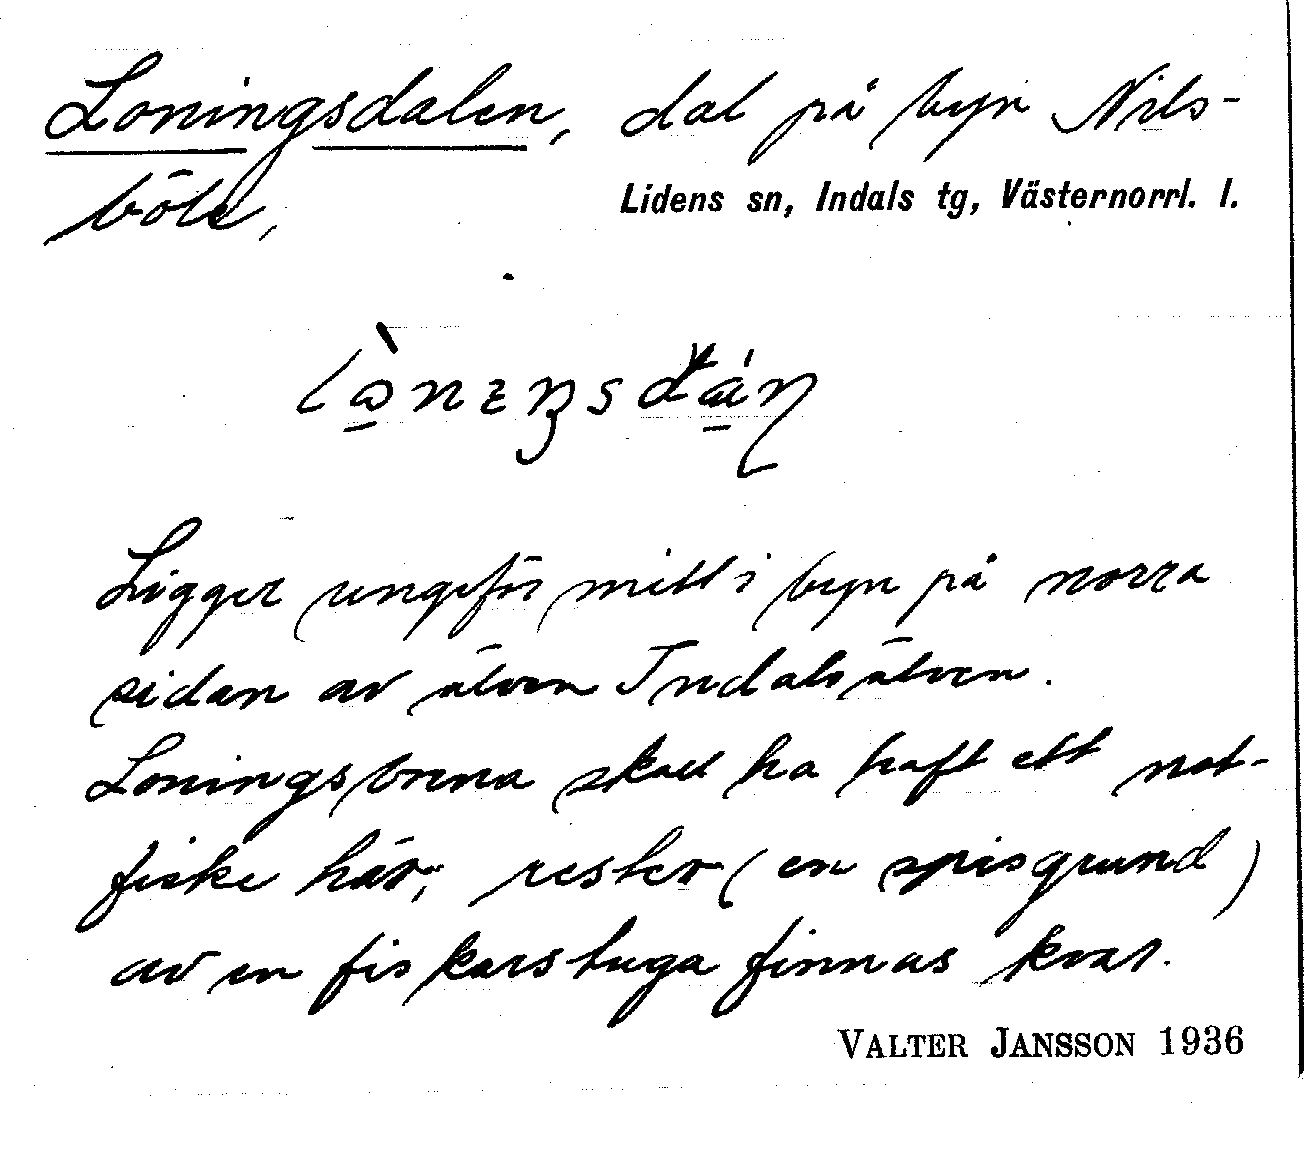 Loningsdalen, dal på byn Nils-
böle,
Lidens sn, Indals tg, Västernorrl. l.
Ligger ungefär mitt i byn på norra
sidan av älven Indalsälven.
Loningsborna skall ha haft ett not-
fiske här; rester (en spisgrund)
av en fiskarstuga finnas kvar.
VALTER JANSSON 1936